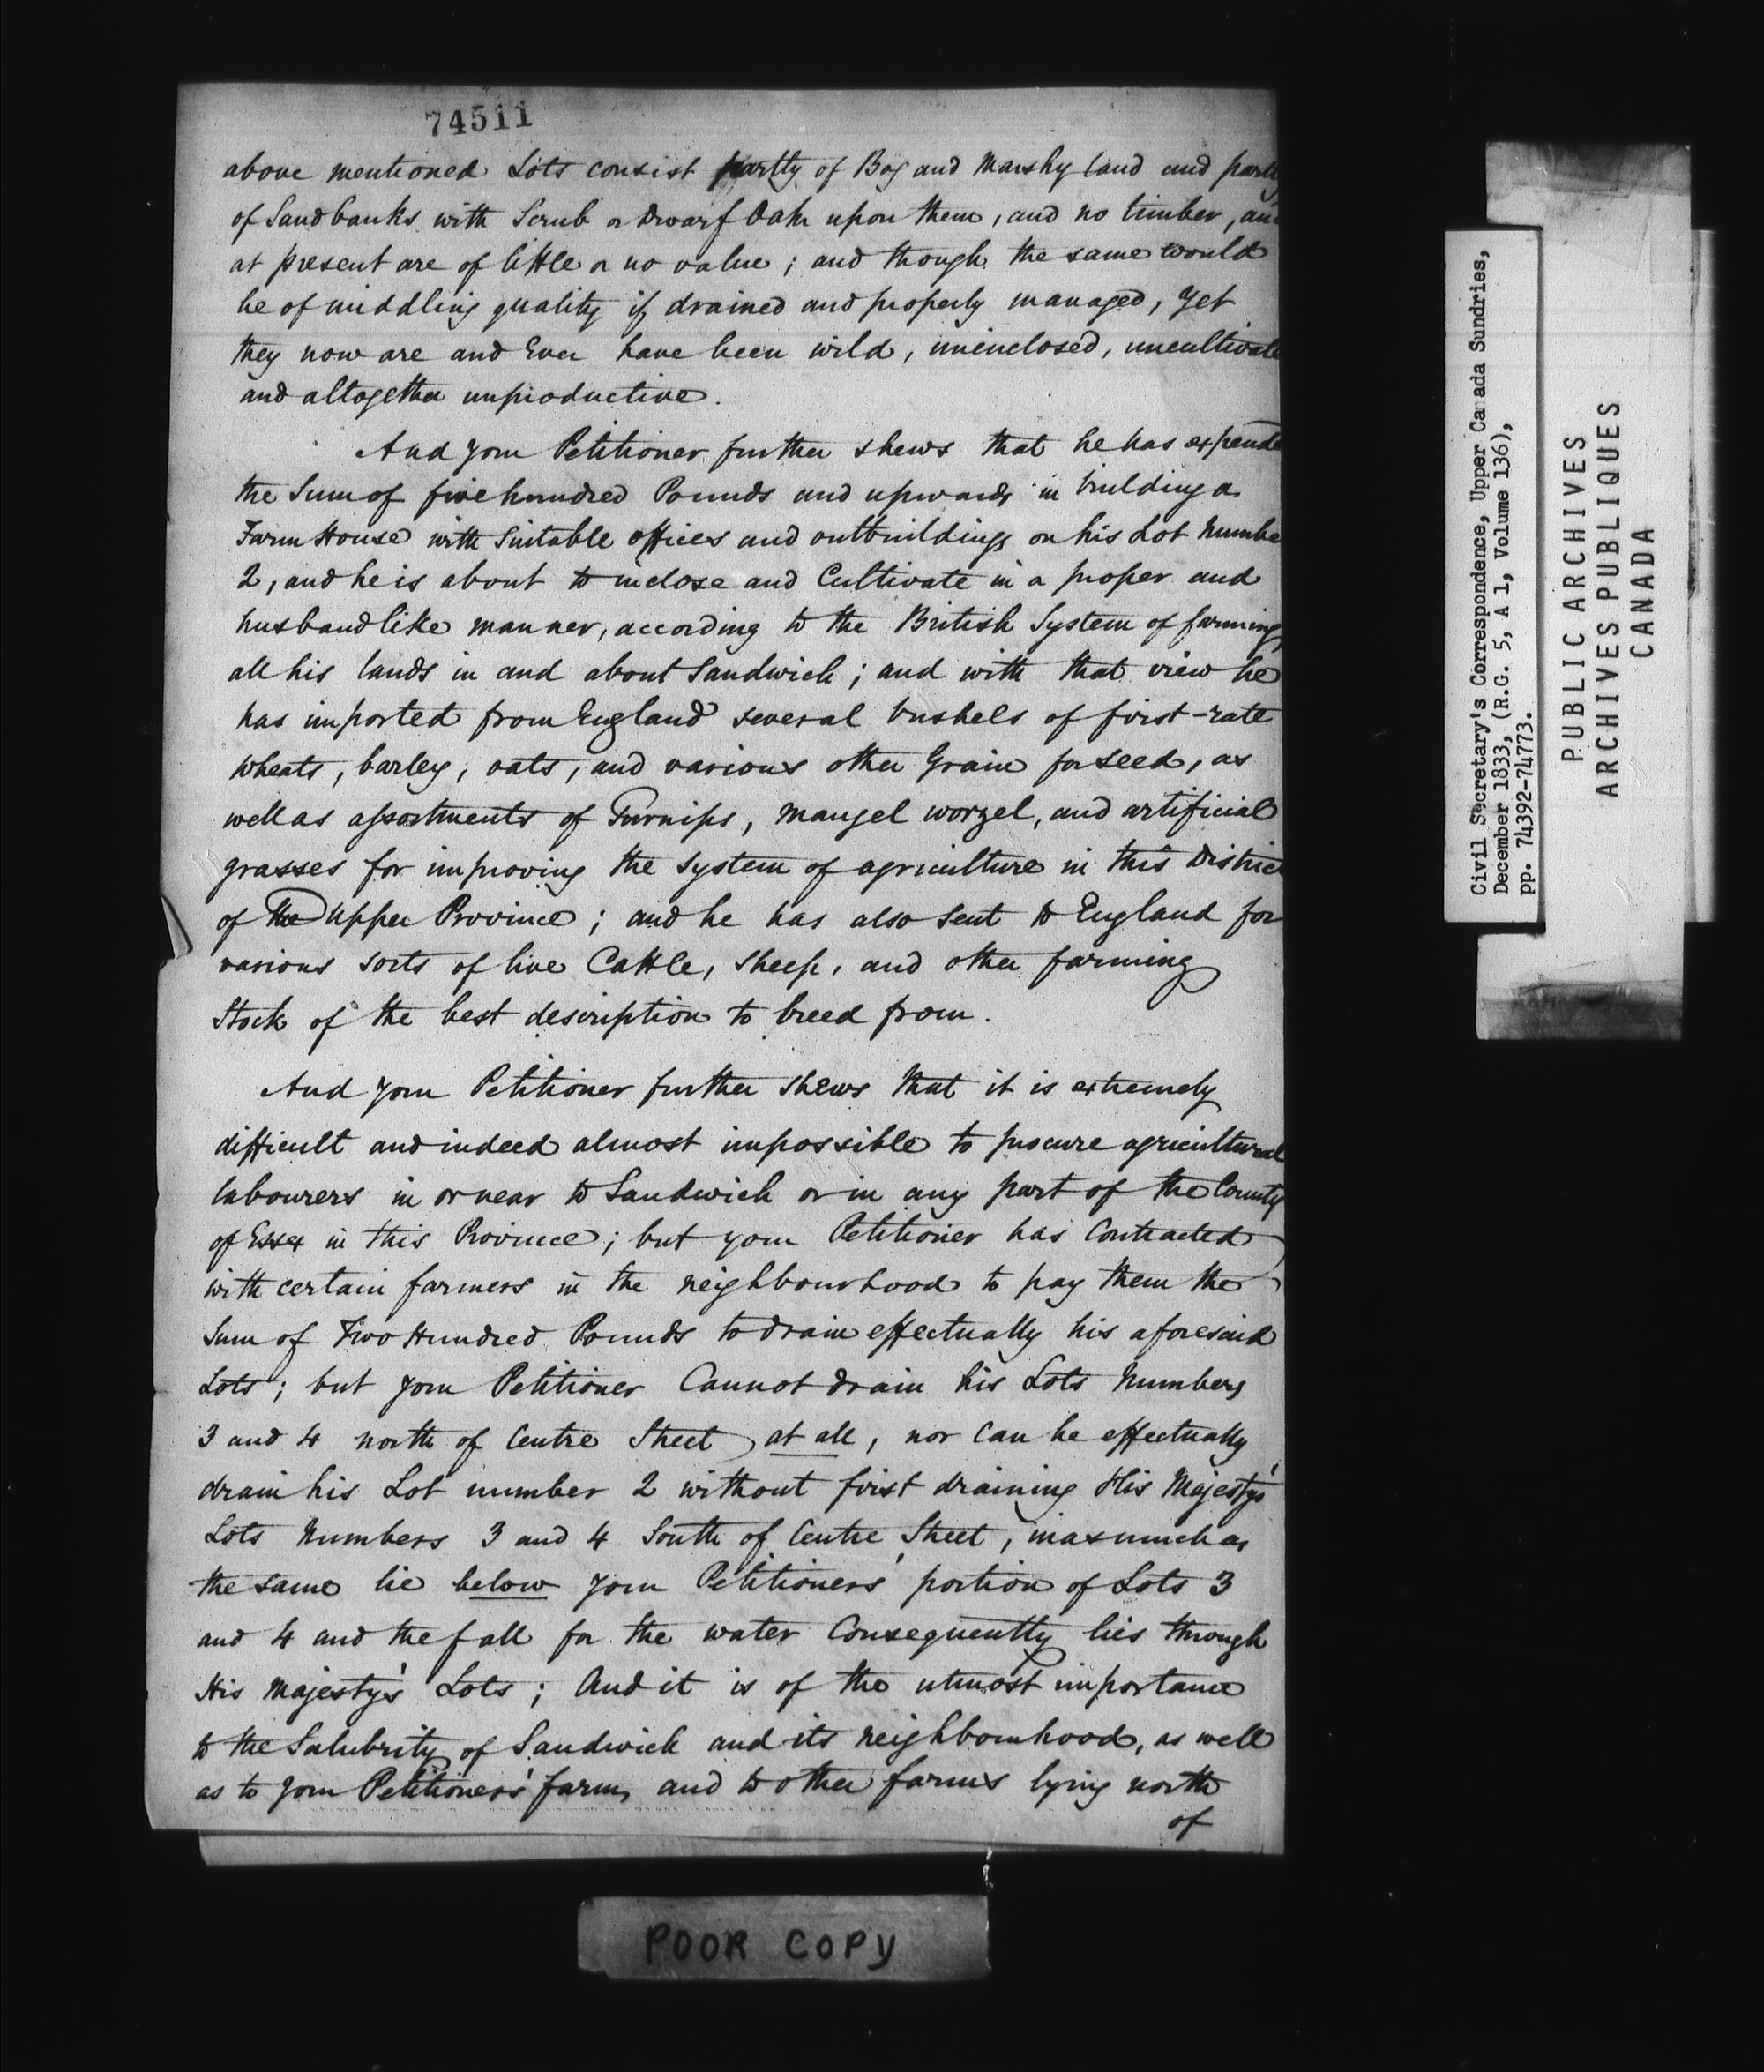 74511
above mentioned Lots consist partly of Bog and Marshy land and partly
of Sandbanks with Scrub or Dwarf Oak upon them, and no timber, and
at present are of little or no value; and though the same would
be of middling quality if drained and properly managed, yet
they now are and Ever have been wild, uninclosed, uncultivate
and altogether unproductive.
And your Petitioner further shews that he has expende
the Sum of five hundred Pounds and upwards in building a
Farm House with Suitable offices and outbuildings on his Lot Numbe
2, and he is about to inclose and Cultivate in a proper and
husbandlike manner, according to the British System of farming
all his lands in and about Sandwich; and with that view he
has imported from England several bushels of first-rate
wheats, barley, oats, and various other Grain for seed, as
well as assortments of Turnips, mangel worzel, and artificial
grasses for improving the system of agriculture in this Distric
of the Upper Province; and he has also sent to England for
various sorts of live Cattle, Sheep, and other farming
Stock of the best description to breed from.
And your Petitioner further shews that it is extremely
difficult and indeed almost impossible to procure agricultural
labourers in or near to Sandwich or in any part of the County
of Essex in this Province; but your Petitioner has Contracted
with certain farmers in the neighbourhood to pay them the
Sum of Two Hundred Pounds to drain effectually his aforesaid
Lots; but your Petitioner Cannot drain his Lots Numbers
3 and 4 north of Centre Street at all, nor can he effectually
drain his Lot number 2 without first draining His Majesty's
Lots Numbers 3 and 4 South of Centre Street, inasmuch as
the same lie below your Petitioners' portion of Lots 3
and 4 and the fall for the water Consequently lies through
His Majesty's Lots; And it is of the utmost importance
to the Salubrity of Sandwich and its neighbourhood, as well
as to your Petitioners' farm, and to other farms lying north
of
POOR COPY
Civil Secretary's Correspondence, Upper Canada Sundries,
December 1833, (R.G. 5, A 1, Volume 136),
pp. 74392-74773.
PUBLIC ARCHIVES
ARCHIVES PUBLIQUES
CANADA